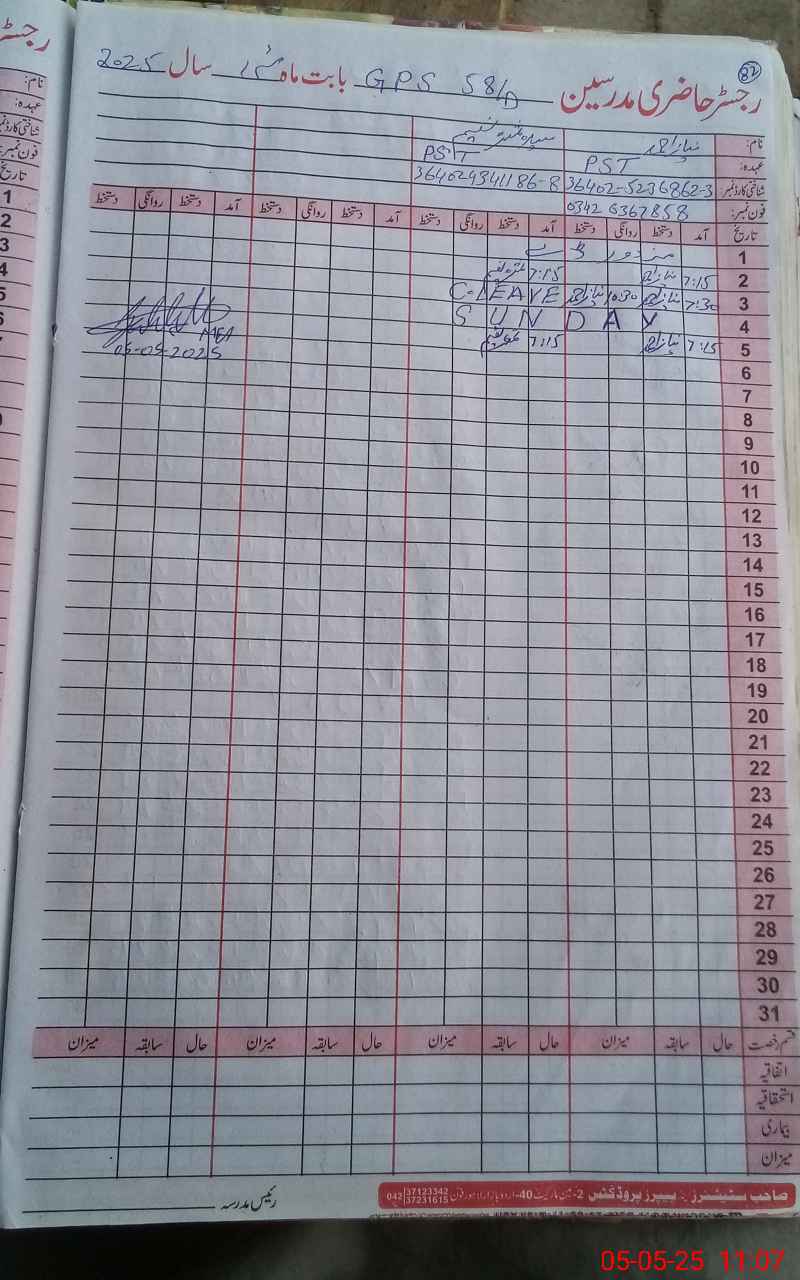 82
رجسٹر حاضری مدرسین GPS 58/D بابت ماہ مئی سال 2025
نام: نیاز احمد
عہدہ: PST PST
شناختی کارڈ نمبر 36402-5236862-3 364029341186-8
فون نمبر: 0342 6367858
تاریخ آمد دستخط روانگی دستخط آمد دستخط روانگی دستخط آمد دستخط روانگی دستخط آمد دستخط روانگی دستخط
1 مزدور ڈے
2 7:15 نیاز احمد 7:15
3 7:30 نیاز احمد 10:30 نیاز احمد C-LEAVE
4 SUNDAY
5 7:15 نیاز احمد 7:15
MEA
05-05-2025
6
7
8
9
10
11
12
13
14
15
16
17
18
19
20
21
22
23
24
25
26
27
28
29
30
31
قسم رخصت حال سابقہ میزان حال سابقہ میزان حال سابقہ میزان حال سابقہ میزان
اتفاقیہ
استحقاقیہ
بیماری
میزان
رئیس مدرسہ
صاحب سٹیشنرز پیپرز پروڈکٹس 40-اردو بازار لاہور فون 042 37123342 37231615
رجسٹر
نام:
عہدہ:
تاریخ
1
2
3
4
05-05-25 11:07